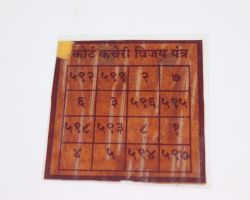 कोर्ट कचेरी विजय यंत्र
५९२ ५९९ २ ७
६ ३ ५९६ ५९५
५९८ ५९३ ८ १
४ ५ ५९४ ५९७